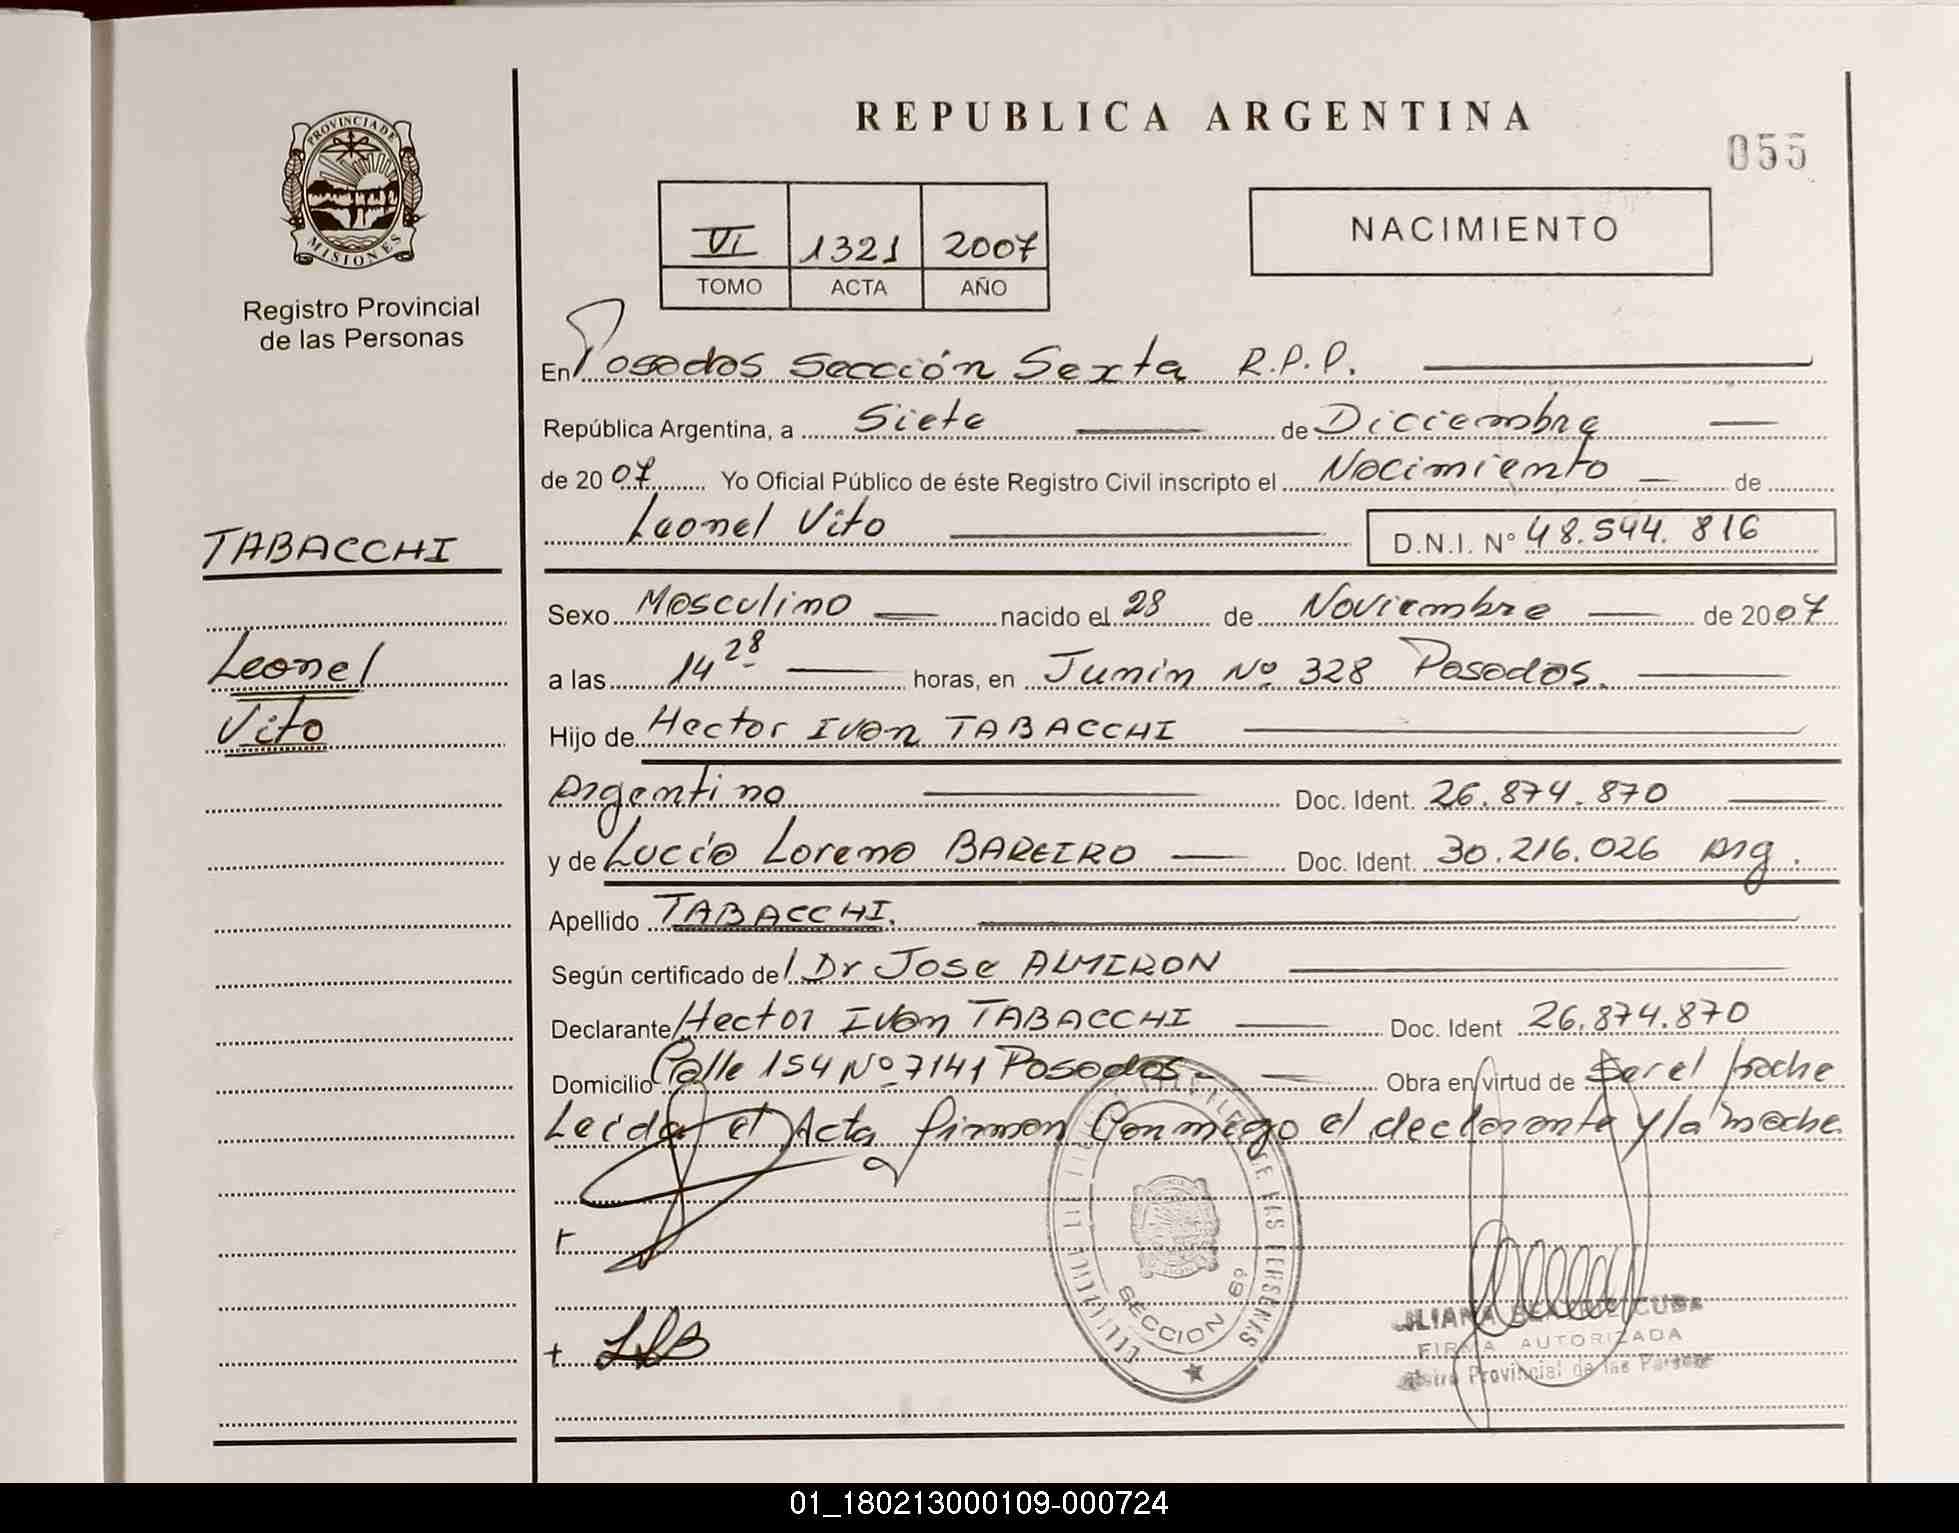 REPUBLICA ARGENTINA
055
PROVINCIA DE
MISIONES
Registro Provincial
de las Personas
VI 1321 2007
TOMO ACTA AÑO
NACIMIENTO
En Posadas Sección Sexta R.P.P.
República Argentina, a Siete de Diciembre
de 2007 Yo Oficial Público de éste Registro Civil inscripto el Nacimiento de
Leonel Vito D.N.I. Nº 48.544.816
TABACCHI
Leonel
Vito
Sexo Masculino nacido el 28 de Noviembre de 2007
a las 14 28 horas, en Junin Nº 328 Posadas.
Hijo de Hector Ivan TABACCHI
Argentino Doc. Ident. 26.874.870
y de Lucía Lorena BAREIRO Doc. Ident. 30.216.026 Arg.
Apellido TABACCHI.
Según certificado del Dr Jose ALMIRON
Declarante Hector Ivan TABACCHI Doc. Ident 26.874.870
Domicilio Calle 154 Nº 7141 Posadas Obra en virtud de Ser el padre
Leída el Acta firman Conmigo el declarante y la madre
SECCION 6º
FIRMA AUTORIZADA
Provincial de las
01_180213000109-000724